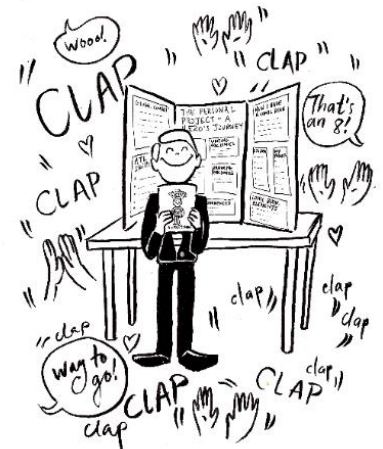 Wooo!
CLAP
CLAP
THE PERSONAL
PROJECT - A
HERO'S JOURNEY
That's
an 8!
CLAP
clap
clap
clap
clap
way to
go!
clap
CLAP
CLAP
clap